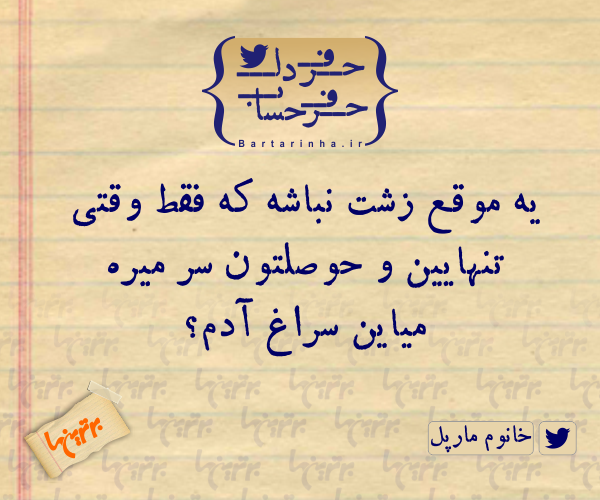 حرف دل
حرف حساب
Bartarinha.ir
یه موقع زشت نباشه که فقط وقتی
تنهایین و حوصلتون سر میره
میاین سراغ آدم؟
برترین‌ها
خانوم مارپل